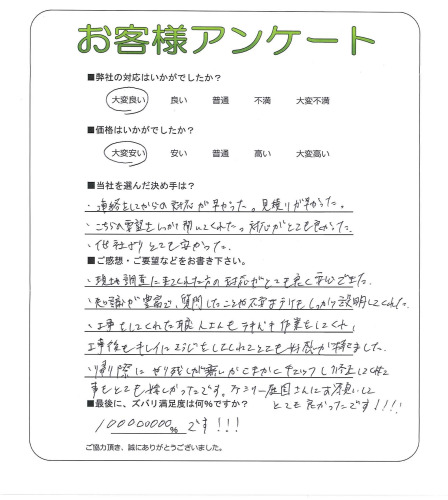 お客様アンケート
■弊社の対応はいかがでしたか?
大変良い 良い 普通 不満 大変不満
■価格はいかがでしたか?
大変安い 安い 普通 高い 大変高い
■当社を選んだ決め手は?
・連絡をしてからの対応が早かった。見積りが早かった。
・こちらの要望をしっかり聞いてくれた。対応がとても良かった。
・他社よりとても安かった。
■ご感想・ご要望などをお書き下さい。
・現地調査に来てくれた方の対応がとても良く安心できた。
・知識が豊富で、質問したことや不安な所をしっかり説明してくれた。
・工事をしてくれた職人さんも テキパキ作業をしてくれ
工事後もキレイにそうじをしてくれてとても好感が持てました。
・帰り際に やり残しが無いか こまかくチェックし
事もとても嬉しかったです。ファミリー庭園さんにお願いして
とても良かったです!!!!
■最後に、ズバリ満足度は何%ですか?
100000000% です!!!
ご協力頂き、誠にありがとうございました。